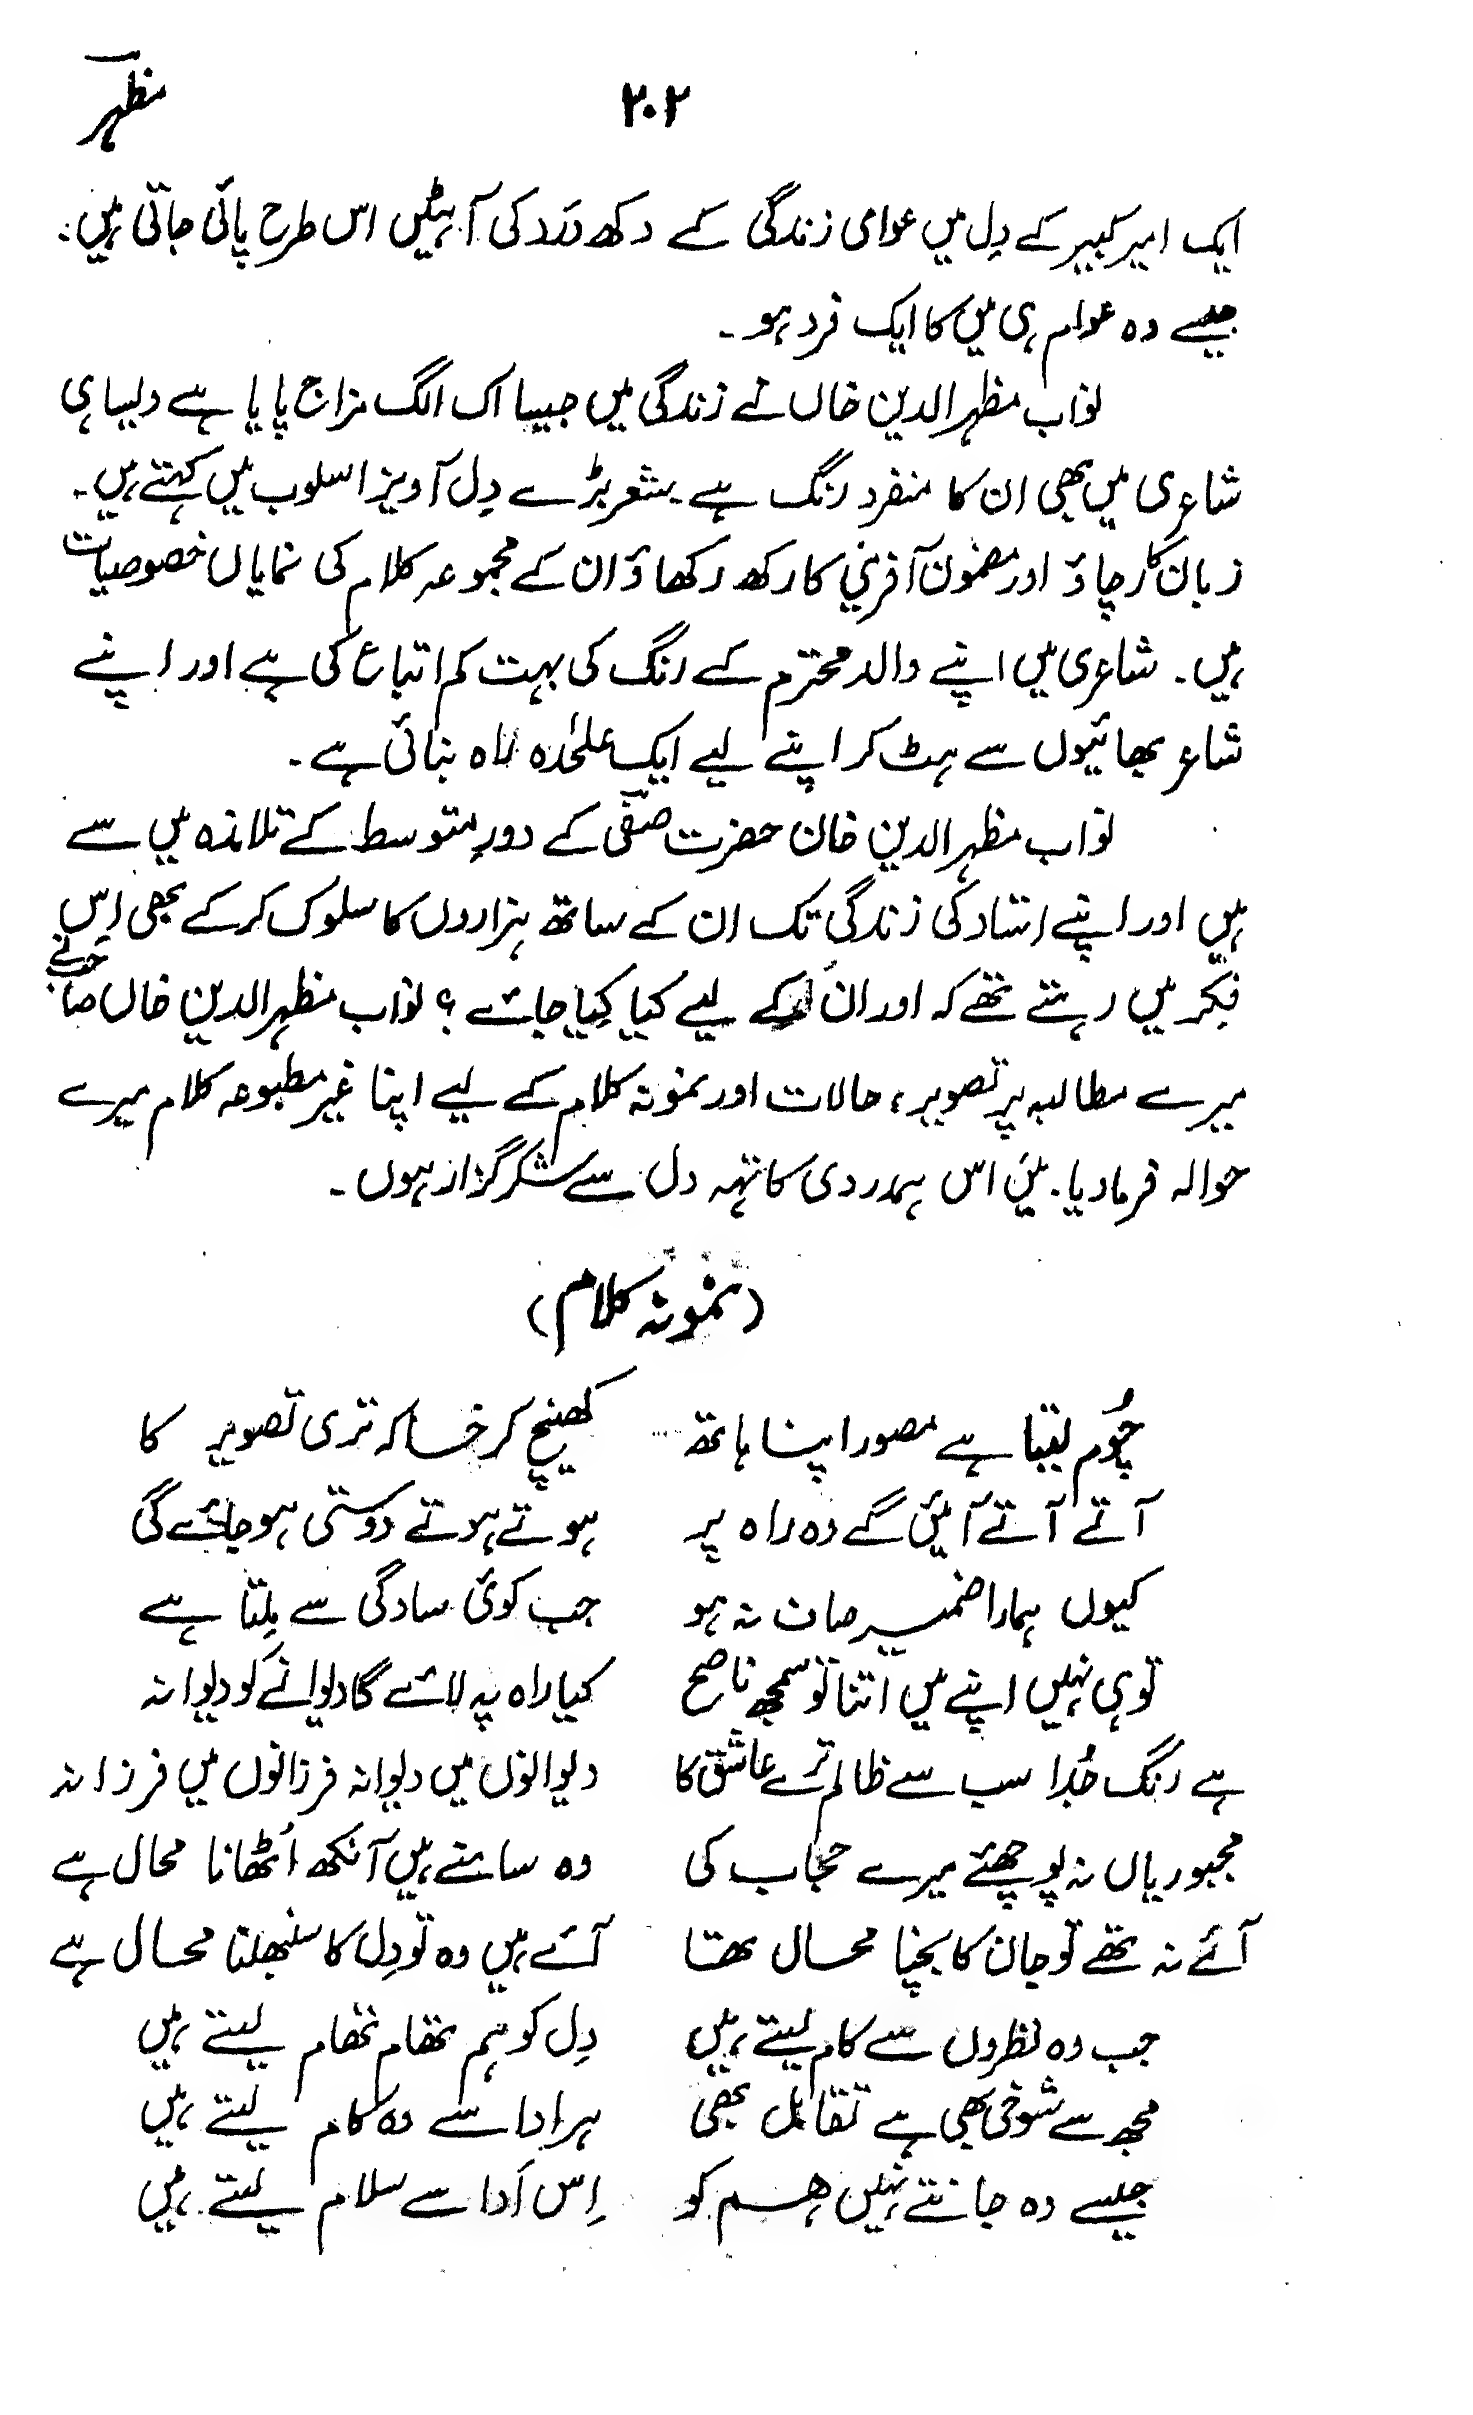 ۲۰۲
مظہر
ایک امیر کبیر کے دِل میں عوامی زندگی کے دکھ دَرد کی آہٹیں اس طرح پائی جاتی ہیں۔
جیسے وہ عوام ہی میں کا ایک فرد ہو۔
نواب مظہر الدین خاں نے زندگی میں جیسا اک الگ مزاج پایا ہے ویسا ہی
شاعری میں بھی ان کا منفرد رنگ ہے۔ شعر بڑے دِل آویز اسلوب میں کہتے ہیں۔
زبان کا رچاؤ اور مضمون آفرینی کا رکھ رکھاؤ ان کے مجموعہ کلام کی نمایاں خصوصیات
ہیں۔ شاعری میں اپنے والد محترم کے رنگ کی بہت کم اتباع کی ہے اور اپنے
شاعر بھائیوں سے ہٹ کر اپنے لیے ایک علٰحدہ راہ بنائی ہے۔
نواب مظہر الدین خان حضرت صفی کے دورِ متوسط کے تلامذہ میں سے
ہیں اور اپنے استاد کی زندگی تک ان کے ساتھ ہزاروں کا سلوک کر کے بھی اِس
فِکر میں رہتے تھے کہ اور ان کے لیے کیا کِیا جائے؟ نواب مظہر الدین خاں صاحب نے
میرے مطالبہ پر تصویر، حالات اور نمونہ کلام کے لیے اپنا غیر مطبوعہ کلام میرے
حوالہ فرما دیا۔ میں اس ہمدردی کا تہہ دل سے شکر گزار ہوں۔
(نمونہ کلام)
چُوم لیتا ہے مصور اپنا ہاتھ کھینچ کر خاکہ تری تصویر کا
آتے آتے آئیں گے وہ راہ پر ہوتے ہوتے دوستی ہو جائے گی
کیوں ہمارا ضمیر صاف نہ ہو جب کوئی سادگی سے مِلتا ہے
تو ہی نہیں اپنے میں اتنا تو سمجھ ناصح کیا راہ پہ لائے گا دیوانے کو دیوانہ
ہے رنگ جُدا سب سے ظالم ترے عاشق کا دیوانوں میں دیوانہ فرزانوں میں فرزانہ
مجبوریاں نہ پوچھئے میرے حجاب کی وہ سامنے ہیں آنکھ اُٹھانا محال ہے
آئے نہ تھے تو جان کا بچنا محال تھا آئے ہیں وہ تو دِل کا سنبھلنا محال ہے
جب وہ نظروں سے کام لیتے ہیں دِل کو ہم تھام تھام لیتے ہیں
مجھ سے شوخی بھی ہے تقابل بھی ہر ادا سے وہ کام لیتے ہیں
جیسے وہ جانتے نہیں ہم کو اِس اَدا سے سلام لیتے ہیں